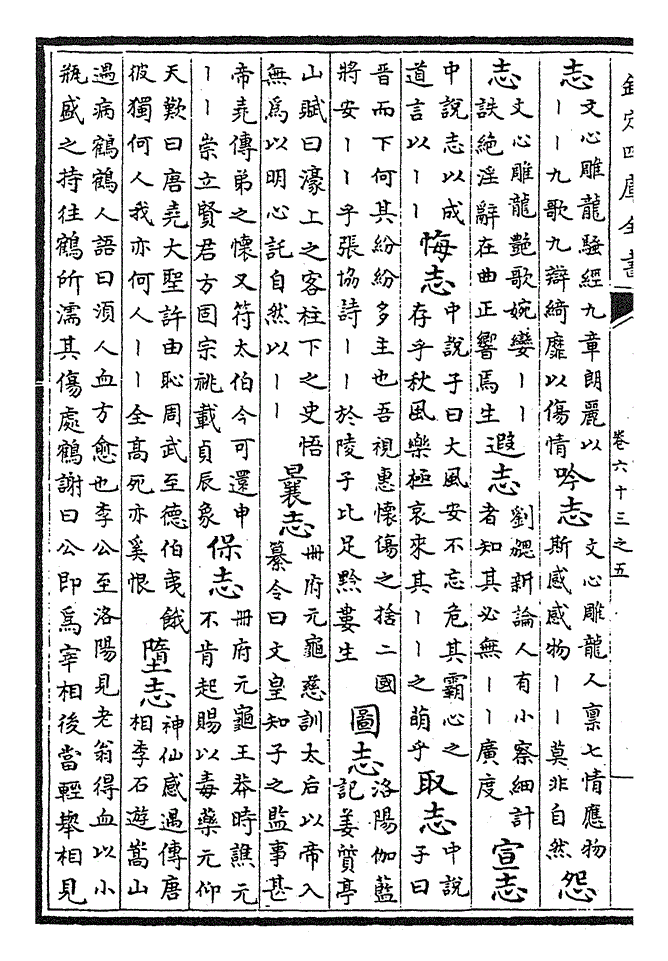 欽定四庫全書
卷六十三之五
志
文心雕龍騷經九章朗麗以
丨丨九歌九辯綺靡以傷情
吟志
文心雕龍人禀七情應物
斯感感物丨丨莫非自然
怨
志
文心雕龍艷歌婉孌丨丨
詄絶淫辭在曲正響焉生
遐志
劉勰新論人有小察細計
者知其必無丨丨廣度
宣志
中說志以成
道言以丨丨
悔志
中說子曰大風安不忘危其霸心之
存乎秋風樂極哀來其丨丨之萌乎
取志
中說
子曰
晉而下何其紛紛多主也吾視惠懷傷之捨二國
將安丨丨乎張協詩丨丨於陵子比足黔婁生
圖志
洛陽伽藍
記姜質亭
山賦曰濠上之客柱下之史悟
無爲以明心託自然以丨丨
曩志
冊府元龜慈訓太后以帝入
纂令曰文皇知子之監事甚
帝堯傳弟之懷又符太伯今可還申
丨丨崇立賢君方固宗祧載貞辰象
保志
冊府元龜王莽時譙元
不肯起賜以毒藥元仰
天歎曰唐堯大聖許由恥周武至德伯夷餓
彼獨何人我亦何人丨丨全髙死亦奚恨
墮志
神仙感遇傳唐
相李石遊嵩山
遇病鶴鶴人語曰須人血方愈也李公至洛陽見老翁得血以小
瓶盛之持往鶴所濡其傷處鶴謝曰公即爲宰相後當輕舉相見